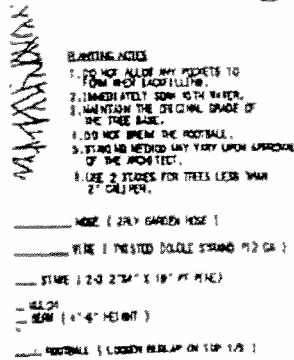 PLANTING NOTES
1. DO NOT ALLOW ANY POCKETS TO
FORM WHEN BACKFILLING.
2. IMMEDIATELY SOAK WITH WATER.
3. MAINTAIN THE ORIGINAL GRADE OF
THE TREE BASE.
4. DO NOT BREAK THE ROOTBALL.
5. STAKING METHOD MAY VARY UPON APPROVAL
OF THE ARCHITECT.
6. USE 2 STAKES FOR TREES LESS THAN
2" CALIPER.
HOSE ( 2PLY GARDEN HOSE )
WIRE ( TWISTED DOUBLE STRAND #12 GA )
STAKE ( 2-3 2"X4" X 10" PT PINE)
MULCH
BERM ( 4"-6" HEIGHT )
ROOTBALL ( LOOSEN BURLAP ON TOP 1/3 )